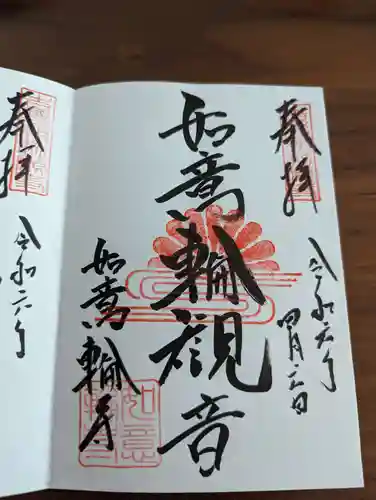 奉拝
令和六年四月六日
如意輪観音
如意輪寺
如意
輪寺
奉拝
令和六年